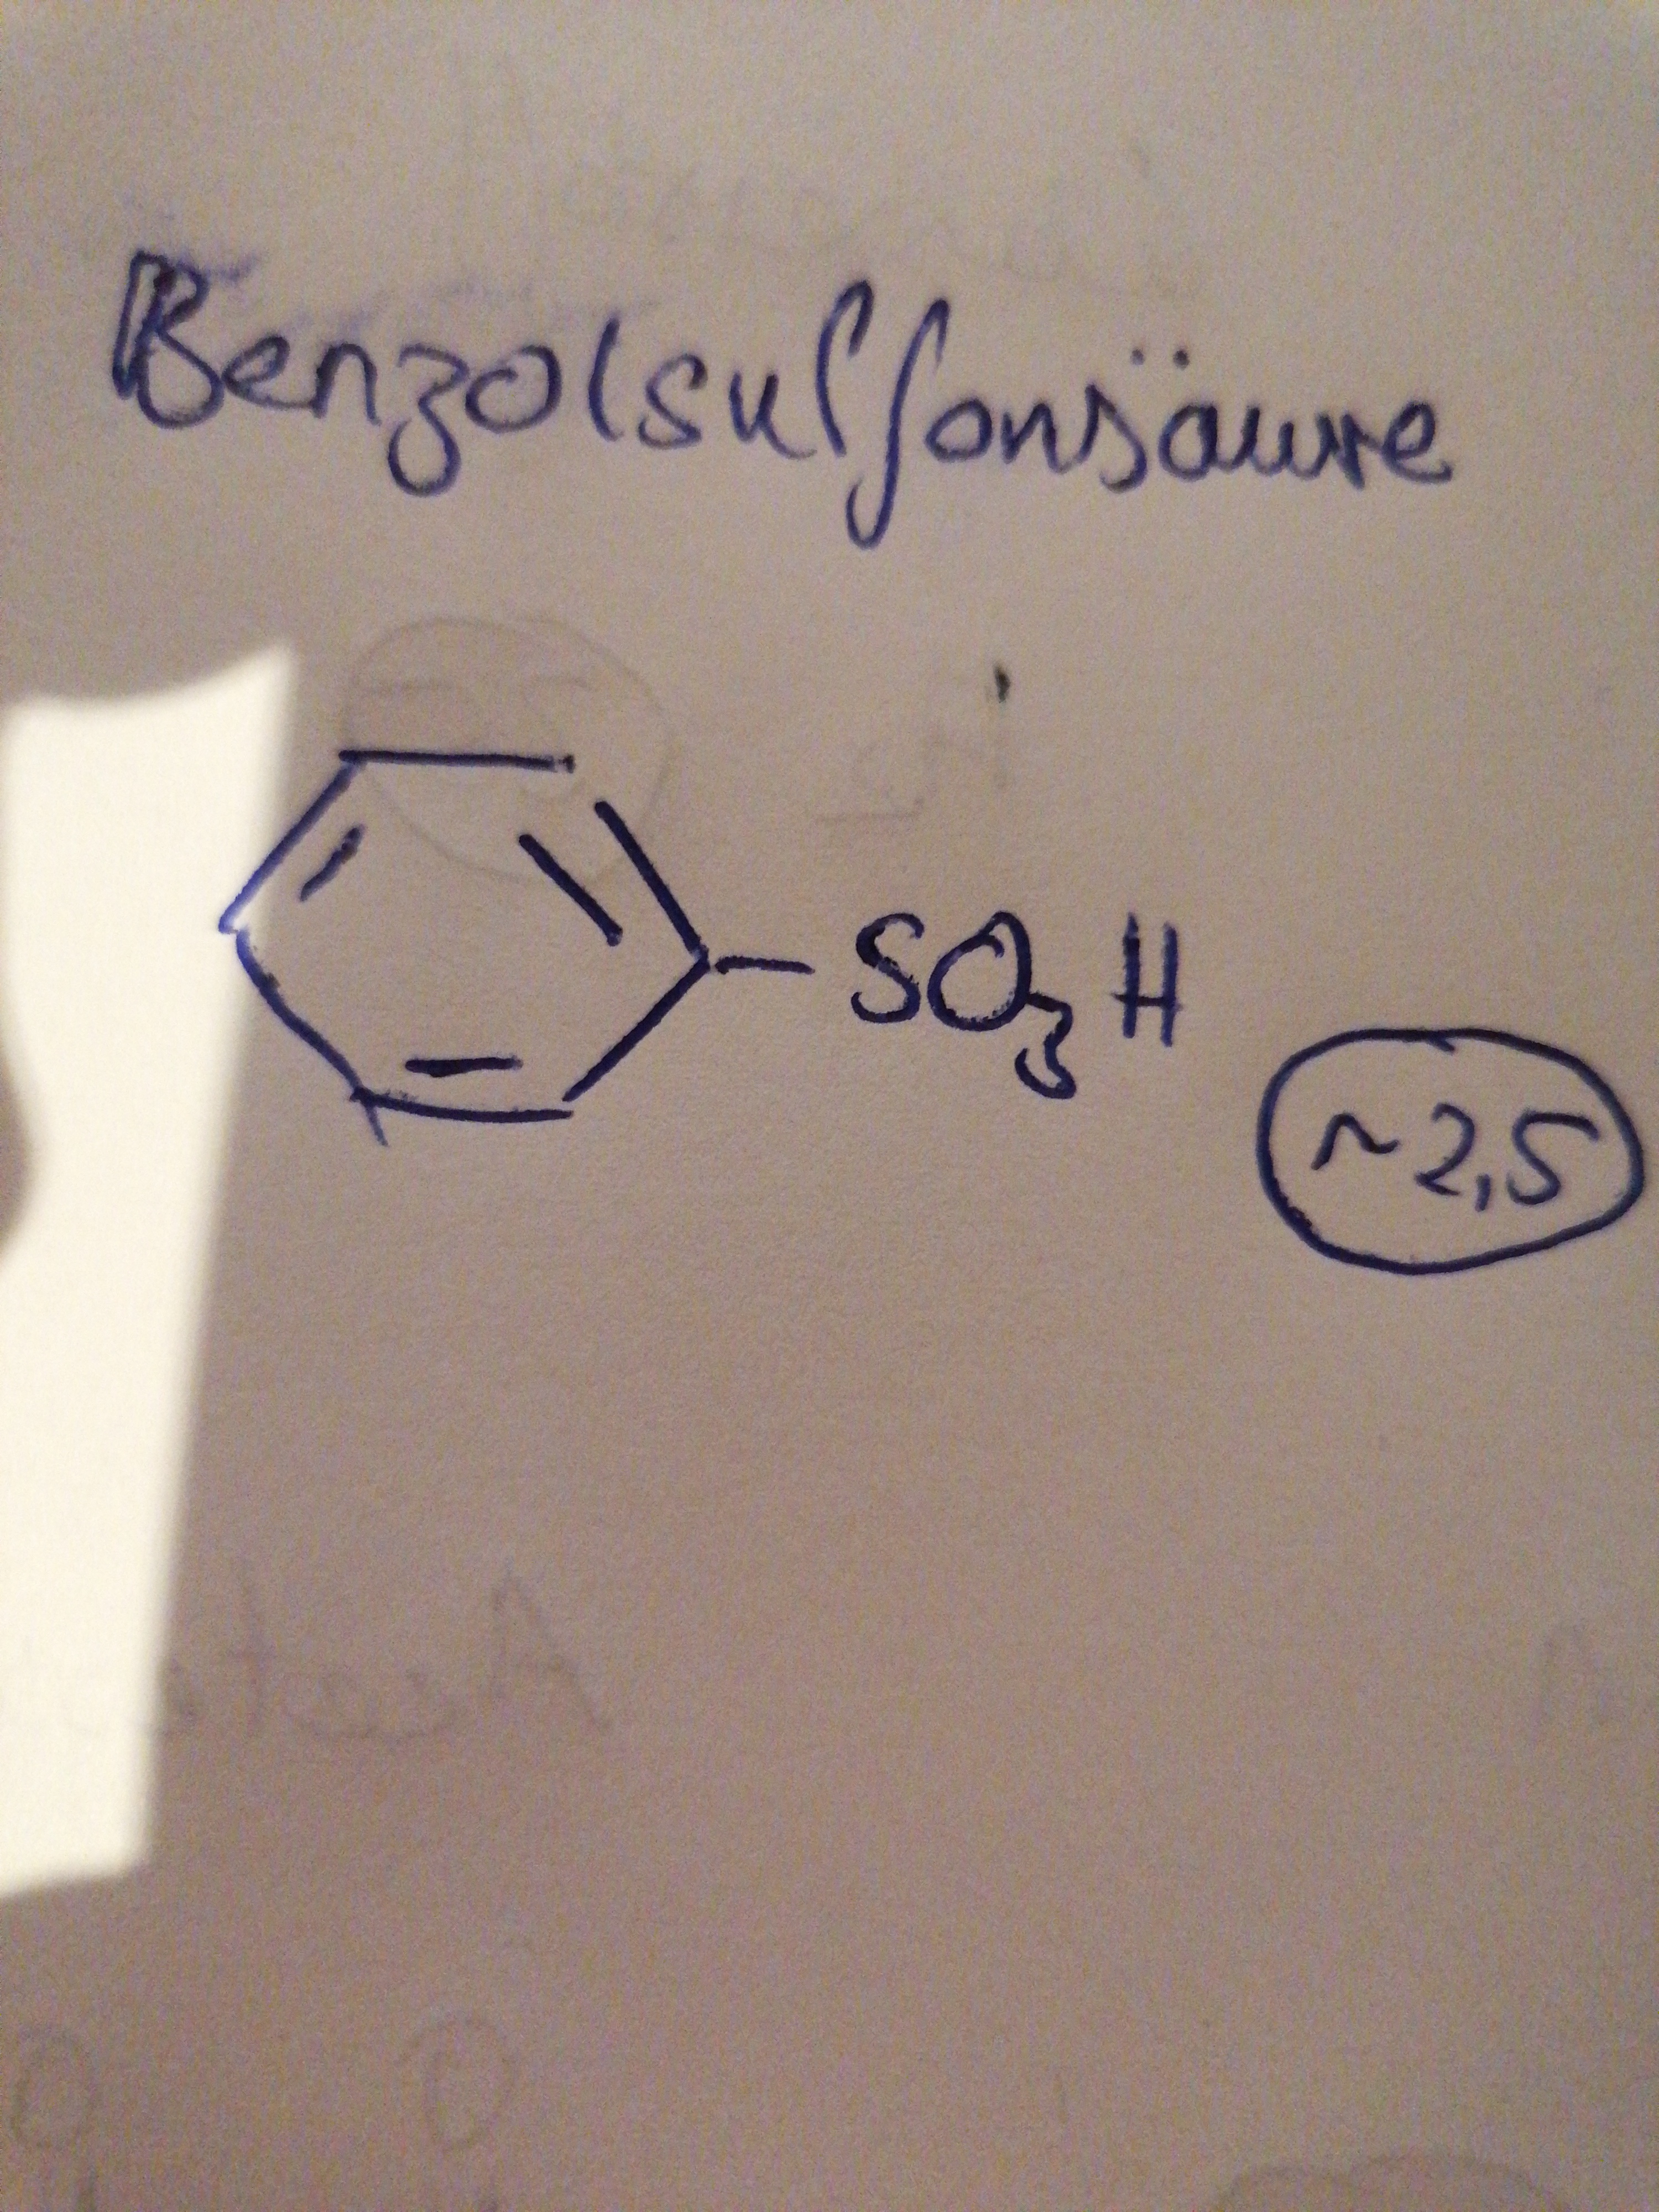 Benzolsulfonsäure
SO3H
~2,5